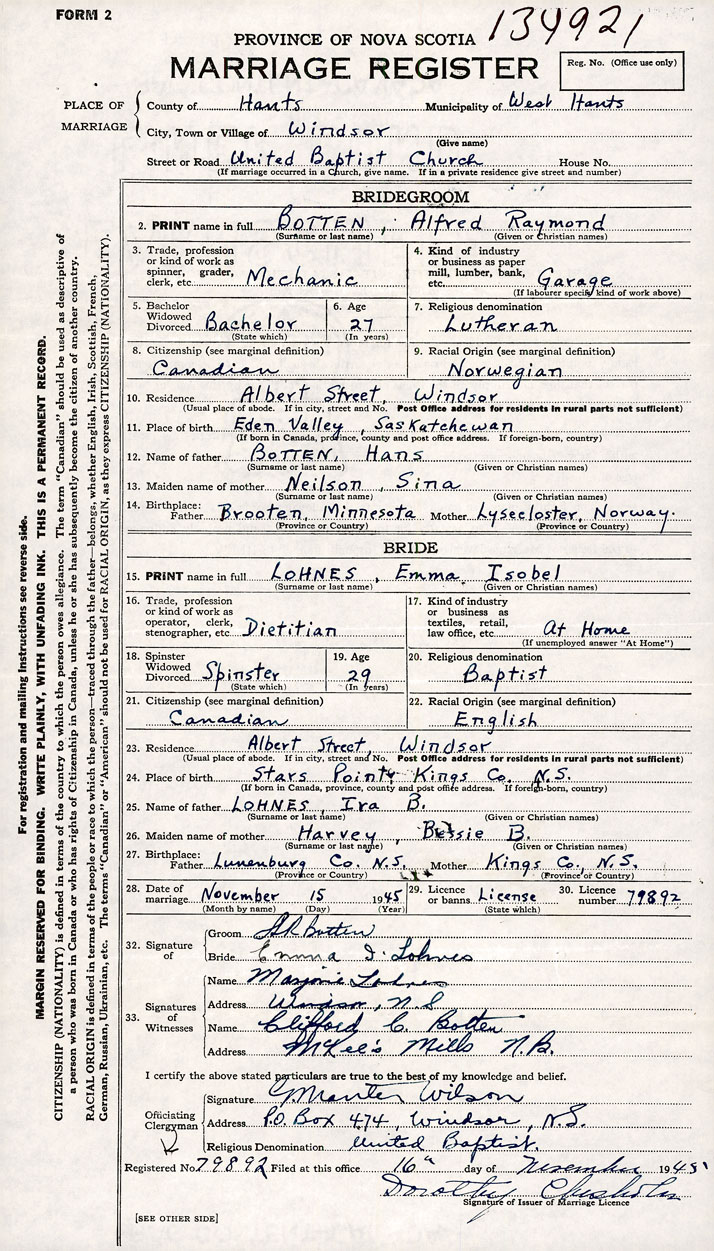 FORM 2
134921
PROVINCE OF NOVA SCOTIA
MARRIAGE REGISTER
Reg. No. (Office use only)
PLACE OF MARRIAGE
County of Hants Municipality of West Hants
City, Town or Village of Windsor
(Give name)
Street or Road United Baptist Church House No.
(If marriage occurred in a Church, give name. If in a private residence give street and number)
BRIDEGROOM
2. PRINT name in full BOTTEN, Alfred Raymond
(Surname or last name) (Given or Christian names)
3. Trade, profession or kind of work as spinner, grader, clerk, etc. Mechanic
4. Kind of industry or business as paper mill, lumber, bank, etc. Garage
(If labourer specify kind of work above)
5. Bachelor Widowed Divorced Bachelor
(State which)
6. Age 27
(In years)
7. Religious denomination
Lutheran
8. Citizenship (see marginal definition)
Canadian
9. Racial Origin (see marginal definition)
Norwegian
10. Residence Albert Street, Windsor
(Usual place of abode. If in city, street and No. Post Office address for residents in rural parts not sufficient)
11. Place of birth Eden Valley, Saskatchewan
(If born in Canada, province, county and post office address. If foreign-born, country)
12. Name of father BOTTEN, Hans
(Surname or last name) (Given or Christian names)
13. Maiden name of mother Neilson, Sina
(Surname or last name) (Given or Christian names)
14. Birthplace: Father Brooten, Minnesota Mother Lysecloster, Norway.
(Province or Country) (Province or Country)
BRIDE
15. PRINT name in full LOHNES, Emma Isobel
(Surname or last name) (Given or Christian names)
16. Trade, profession or kind of work as operator, clerk, stenographer, etc. Dietitian
17. Kind of industry or business as textiles, retail, law office, etc. At Home
(If unemployed answer "At Home")
18. Spinster Widowed Divorced Spinster
(State which)
19. Age 29
(In years)
20. Religious denomination
Baptist
21. Citizenship (see marginal definition)
Canadian
22. Racial Origin (see marginal definition)
English
23. Residence Albert Street, Windsor
(Usual place of abode. If in city, street and No. Post Office address for residents in rural parts not sufficient)
24. Place of birth Stars Point, Kings Co. N.S.
(If born in Canada, province, county and post office address. If foreign-born, country)
25. Name of father LOHNES, Ira B.
(Surname or last name) (Given or Christian names)
26. Maiden name of mother Harvey, Bessie B.
(Surname or last name) (Given or Christian names)
27. Birthplace: Father Lunenburg Co. N.S. Mother Kings Co., N.S.
(Province or Country) (Province or Country)
28. Date of marriage November 15 1945
(Month by name) (Day) (Year)
29. Licence or banns License
(State which)
30. Licence number 79892
32. Signature of
Groom A R Botten
Bride Emma I. Lohnes
33. Signatures of Witnesses
Name Marjorie Lohnes
Address Windsor, N.S
Name Clifford C. Botten
Address McKee's Mills N.B.
I certify the above stated particulars are true to the best of my knowledge and belief.
Officiating Clergyman
Signature Manter Wilson
Address P.O. Box 474, Windsor, N.S.
Religious Denomination United Baptist.
Registered No. 79892 Filed at this office 16" day of November 1945
Dorothy Chisholm
Signature of Issuer of Marriage Licence
[SEE OTHER SIDE]
For registration and mailing instructions see reverse side.
MARGIN RESERVED FOR BINDING. WRITE PLAINLY, WITH UNFADING INK. THIS IS A PERMANENT RECORD.
CITIZENSHIP (NATIONALITY) is defined in terms of the country to which the person owes allegiance. The term "Canadian" should be used as descriptive of
a person who was born in Canada or who has rights of Citizenship in Canada, unless he or she has subsequently become the citizen of another country.
RACIAL ORIGIN is defined in terms of the people or race to which the person—traced through the father—belongs, whether English, Irish, Scottish, French,
German, Russian, Ukrainian, etc. The terms "Canadian" or "American" should not be used for RACIAL ORIGIN, as they express CITIZENSHIP (NATIONALITY).